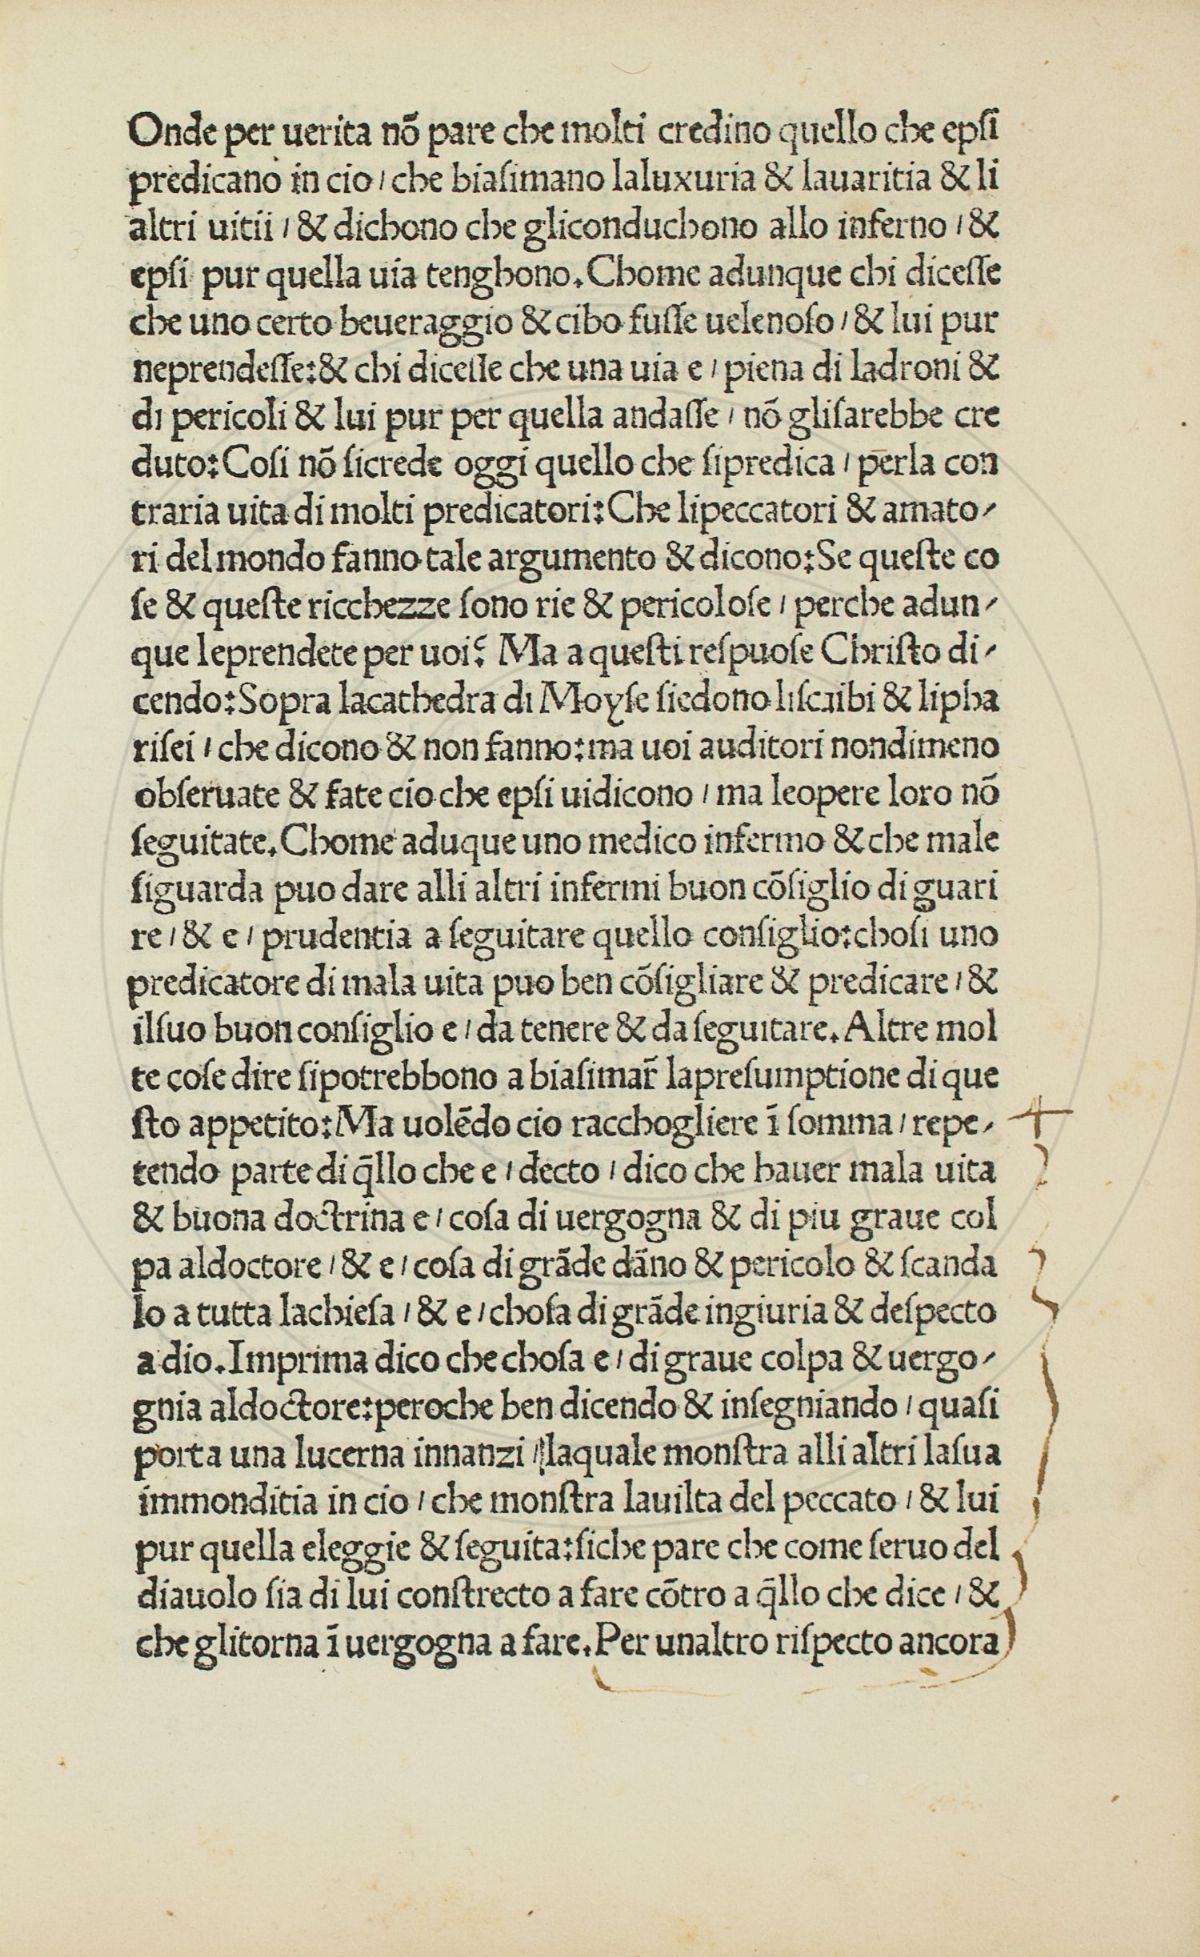 Onde per uerita nõ pare che molti credino quello che epſi
predicano in cio / che biaſimano laluxuria & lauaritia & li
altri uitii / & dichono che gliconduchono allo inferno / &
epſi pur quella uia tenghono. Chome adunque chi diceſſe
che uno certo beueraggio & cibo fuſſe uelenoſo / & lui pur
neprendeſſe: & chi diceſſe che una uia e / piena di ladroni &
di pericoli & lui pur per quella andaſſe / nõ gliſarebbe cre
duto: Coſi nõ ſicrede oggi quello che ſipredica / perla con
traria uita di molti predicatori: Che lipeccatori & amato⸗
ri del mondo fanno tale argumento & dicono: Se queſte co
ſe & queſte ricchezze ſono rie & pericoloſe / perche adun⸗
que leprendete per uoi? Ma a queſti reſpuoſe Chriſto di⸗
cendo: Sopra lacathedra di Moyſe ſiedono liſcribi & lipha
riſei / che dicono & non fanno: ma uoi auditori nondimeno
obſeruate & fate cio che epſi uidicono / ma leopere loro nõ
ſeguitate. Chome aduque uno medico infermo & che male
ſiguarda puo dare alli altri infermi buon cõſiglio di guari
re / & e / prudentia a ſeguitare quello conſiglio: choſi uno
predicatore di mala uita puo ben cõſigliare & predicare / &
ilſuo buon conſiglio e / da tenere & da ſeguitare. Altre mol
te coſe dire ſipotrebbono a biaſimar̃ lapreſumptione di que
ſto appetito: Ma uolẽdo cio racchogliere ĩ ſomma / repe⸗
tendo parte di q̃llo che e / decto / dico che hauer mala uita
& buona doctrina e / coſa di uergogna & di piu graue col
pa aldoctore / & e / coſa di grãde dãno & pericolo & ſcanda
lo a tutta lachieſa / & e / choſa di grãde ingiuria & deſpecto
a dio. Imprima dico che choſa e / di graue colpa & uergo⸗
gnia aldoctore: peroche ben dicendo & inſegniando / quaſi
porta una lucerna innanzi / laquale monſtra alli altri laſua
immonditia in cio / che monſtra lauilta del peccato / & lui
pur quella eleggie & ſeguita: ſiche pare che come ſeruo del
diauolo ſia di lui conſtrecto a fare cõtro a q̃llo che dice / &
che glitorna ĩ uergogna a fare. Per unaltro riſpecto ancora